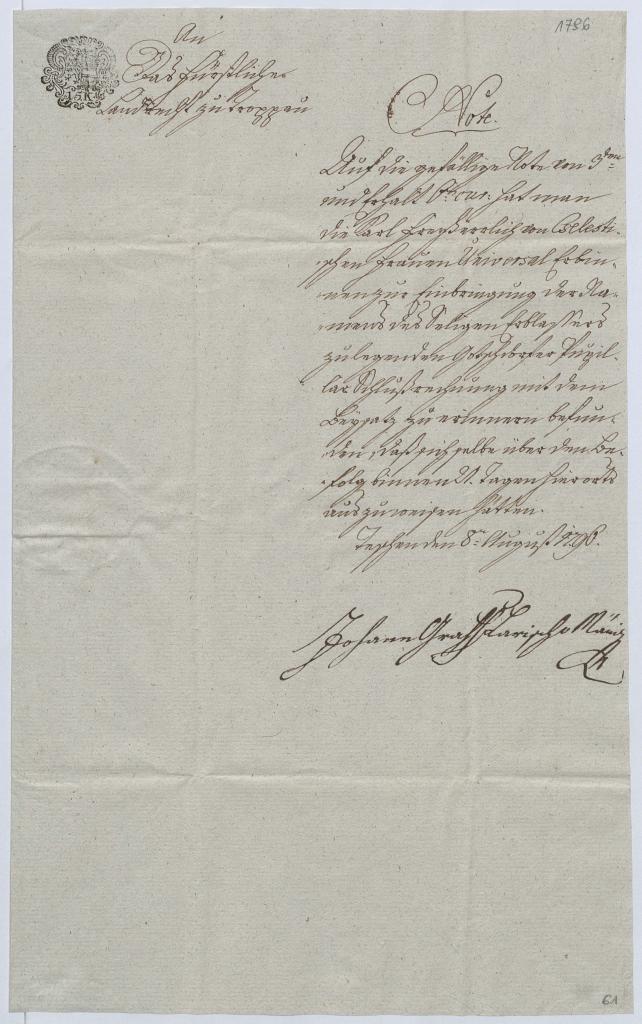 1796
15 K
An
Das fürstliche
Landrecht zu Troppau
Note.
Auf die gefällige Note von 3ten
und Erhalt 6t. cur. hat man
die Karl Freyherrlich von Celesti-
schen Frauen Universal Erbin-
nen zur Einbringung der Na-
mens des Seeligen Erblassers
zulegenden Gotschdorfer Pupil-
lar Schlußrechnung mit dem
Beysatz zu erinnern befun-
den, daß sich selbe über den Be-
folg binnen 21. Tagen hierorts
auszuweisen hätten.
Teschen den 8n August 1796.
Johann Graf Larisch v Männich
61